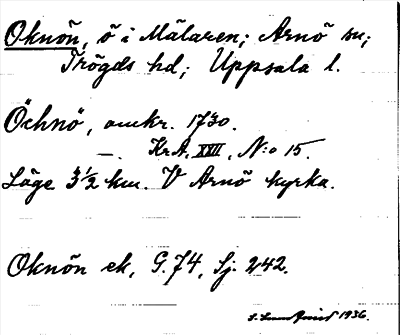 Oknön, ö i Mälaren; Arnö sn;
Trögds hd; Uppsala l.
Öchnö, omkr. 1730.
—. Kr.A. XXII, N:o 15.
Läge 3½ km. V Arnö kyrka.
Oknön ek, G. 74, Sj. 242.
1936.